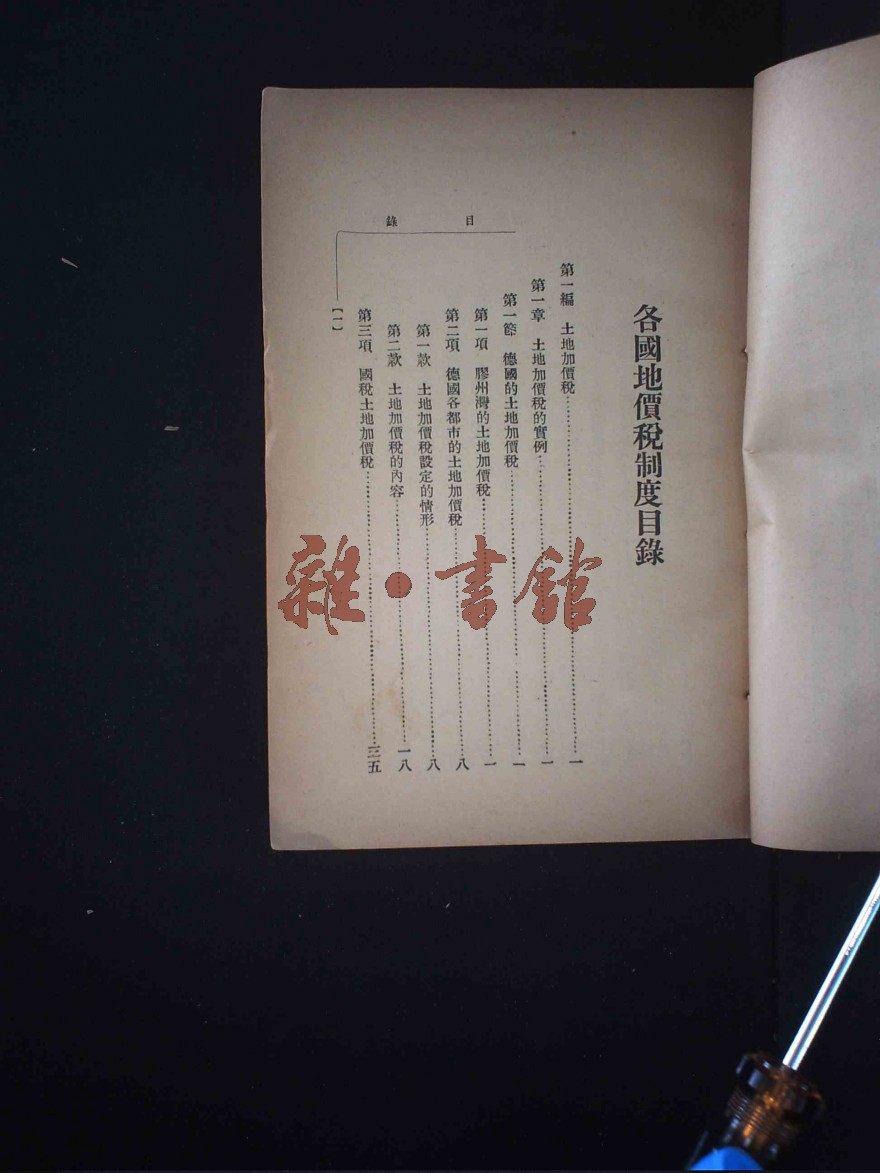 各國地價稅制度目錄
第一編　土地加價稅……一
第一章　土地加價稅的實例……一
第一節　德國的土地加價稅……一
第一項　膠州灣的土地加價稅……一
第二項　德國各都市的土地加價稅……八
第一款　土地加價稅設定的情形……八
第二款　土地加價稅的內容……一八
第三項　國稅土地加價稅……三五
目錄
【一】
雜·書館